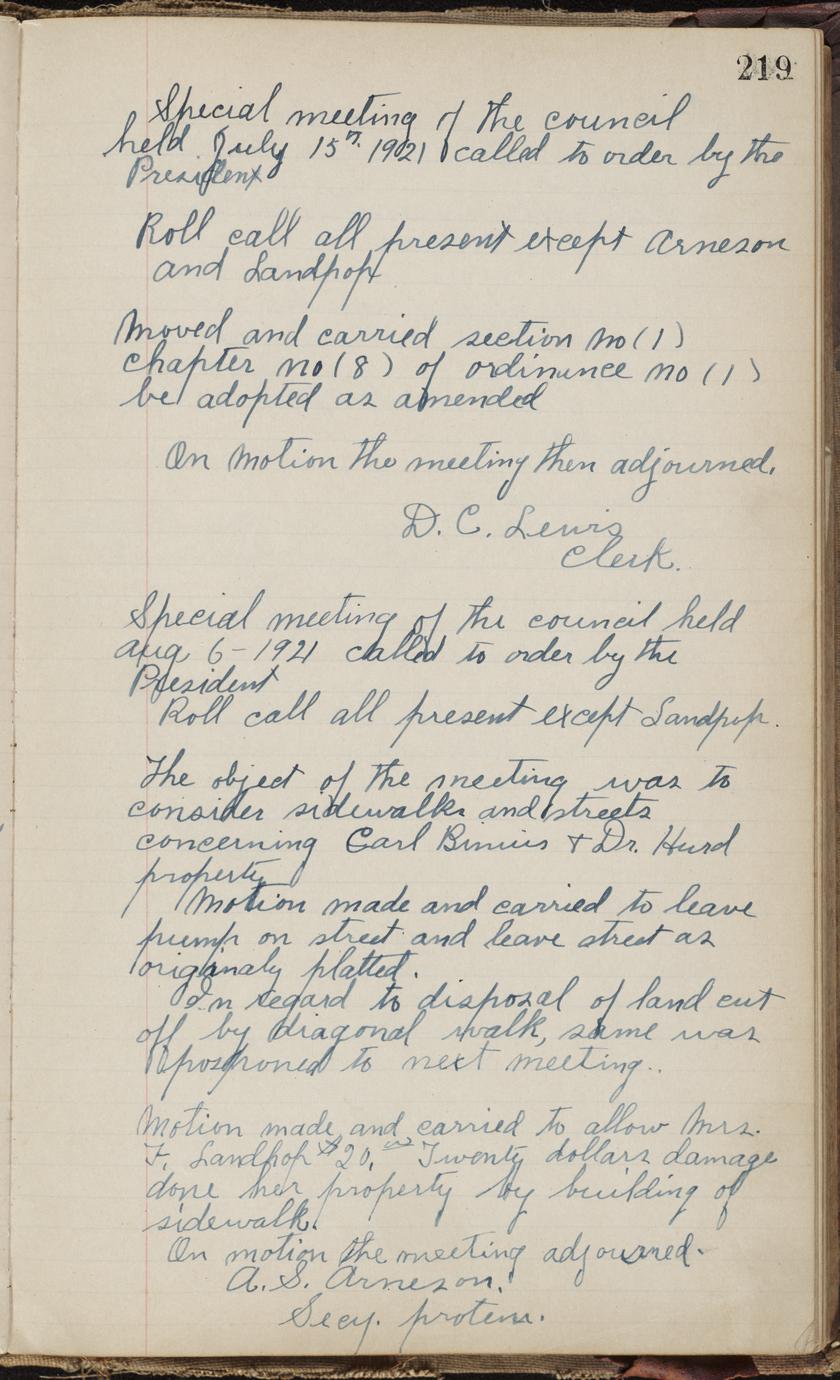 219
Special meeting of the council
held July 15th 1921 called to order by the
President
Roll call all present except Arneson
and Landpop
Moved and carried section no (1)
chapter no (8) of ordinunce no (1)
be adopted as amended
On motion the meeting then adjourned.
D. C. Lewis
Clerk.
Special meeting of the council held
Aug 6-1921 called to order by the
President
Roll call all present except Landpop.
The object of the meeting was to
consider sidewalks and streets
concerning Carl Binius + Dr. Hurd
property
Motion made and carried to leave
pump on street and leave street as
originaly platted.
In regard to disposal of land cut
off by diagonal walk, same was
postponed to next meeting..
Motion made and carried to allow Mrs.
F. Landpop $20.00 Twenty dollars damage
done her property by building of
sidewalk.
On motion the meeting adjourned.
A. S. Arneson.
Secy. protem.